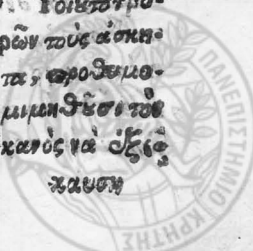 ρῶν τοὺς ἀσκη-
τας, προθυμο-
μιμηθῶσι τὸν
κανὸς νὰ ἐξι
καυση
ΠΑΝΕΠΙΣΤΗΜΙΟ ΚΡΗΤΗΣ